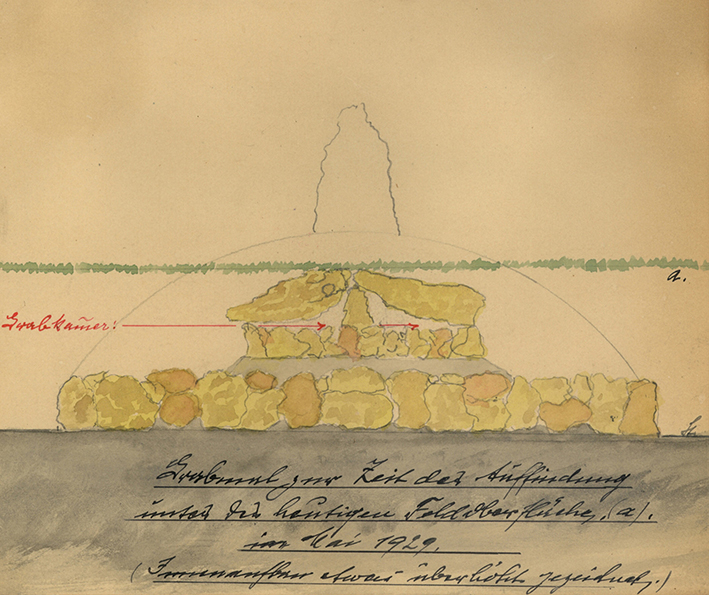 a.
Grabkam̄er:
Grabmal zur Zeit der Auffindung
unter der heutigen Feldoberfläche, (a).
im Mai 1929.
(Innenaufbau etwas überhöht gezeichnet.)